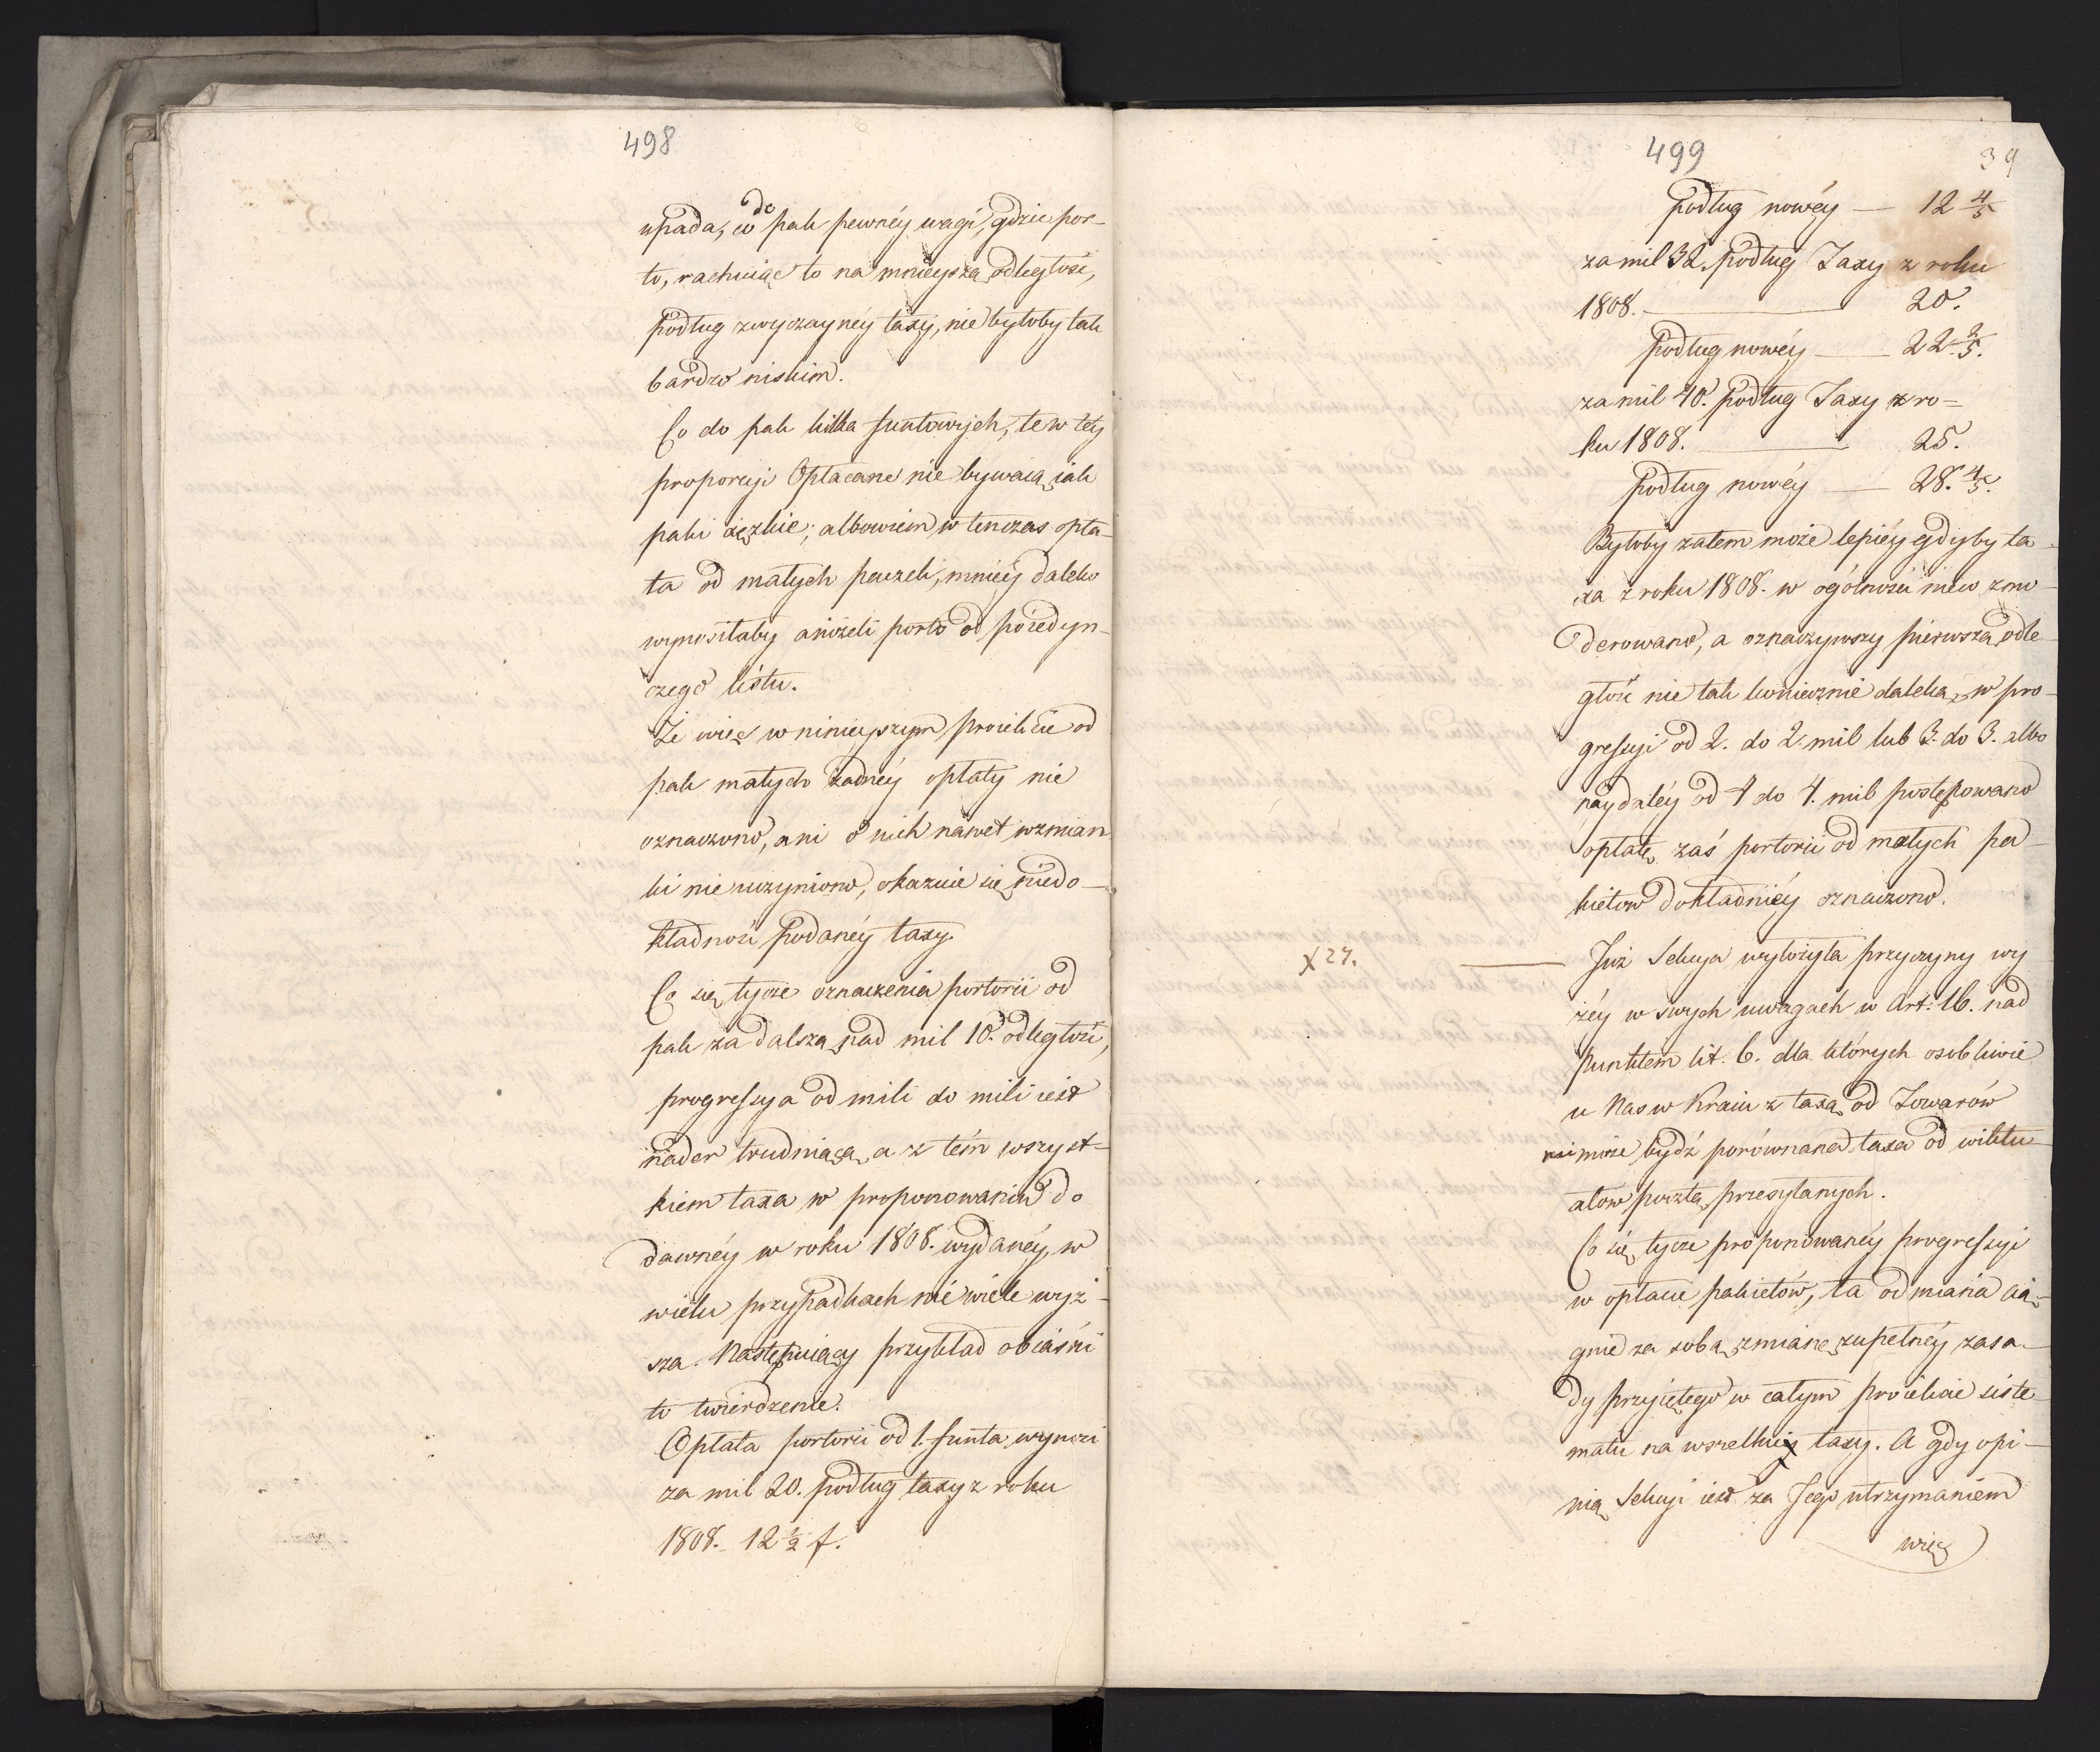 498
upada, do pak pewnéy wagi, gdzie por-
to, rachuiąc to na mnieyszą odległość,
podług zwyczaynéy taxy, nie byłoby tak
bardzo niskim.
Co do pak kilka funtowych, te w téy
proporcyi Opłacane nie bywaią iak
paki ciężkie; albowiem w tenczas opła-
ta od małych paczek, mniéy daleko
wynosiłaby aniżeli porto od poiedyn-
czego listu.
Że więc w ninieyszym proiekcie od
pak małych żadnéy opłaty nie
oznaczono, ani o nich nawet wzmian
ki nie uczyniono, okazuie się niedo-
kładność podanéy taxy.
Co się tycze oznaczenia portorii od
pak za dalszą nad mil 10. odległość,
progressya od mili do mili iest
nader trudniącą, a z tém wszyst-
kiem taxa w proponowaniu do
dawnéy w roku 1808. wydanéy, w
wielu przypadkach nie wiele wyż-
sza. Następuiący przykład obiaśni
to twierdzenie.
Opłata portorii od 1. funta wynosi
za mil 20. podług taxy z roku
1808. 12 1/2 f.
499
39
Podług nowéy — 12 4/5
za mil 32. podług Taxy z roku
1808. — 20.
Podług nowéy — 22 2/5.
za mil 40. podług Taxy z ro=
ku 1808. — 25.
Podług nowéy — 28. 4/5.
Byłoby zatem może lepiéy gdyby ta-
xa z roku 1808. w ogólności zmo-
derowano, a oznaczywszy pierwszą odle
głość nie tak koniecznie daleką, w pro-
gressyi od 2. do 2. mil lub 3. do 3. albo
naydaléy od 4 do 4. mil postępowano
opłatę zaś portorii od małych pa-
kietow dokładniéy oznaczono.
X 27. — Już Sekcya wyłożyła przyczyny wy
żéy w swych uwagach w Art: 16. nad
punktem lit. b. dla których osobliwie
u Nas w Kraiu z taxą od Towarów
nie może bydź porównana taxa od wiktu-
ałow pocztą przesyłanych.
Co się tycze proponowanéy progressyi
w opłacie pakietów, ta odmiana cią-
gnie za sobą zmianę zupełnéy zasa-
dy przyiętego w całym proiekcie siste-
matu na wszelkiey taxy. A gdy opi-
nią Sekcyi iest za Jego utrzymaniem
więc